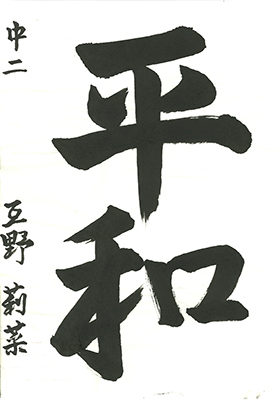 平和
中二
互野莉菜